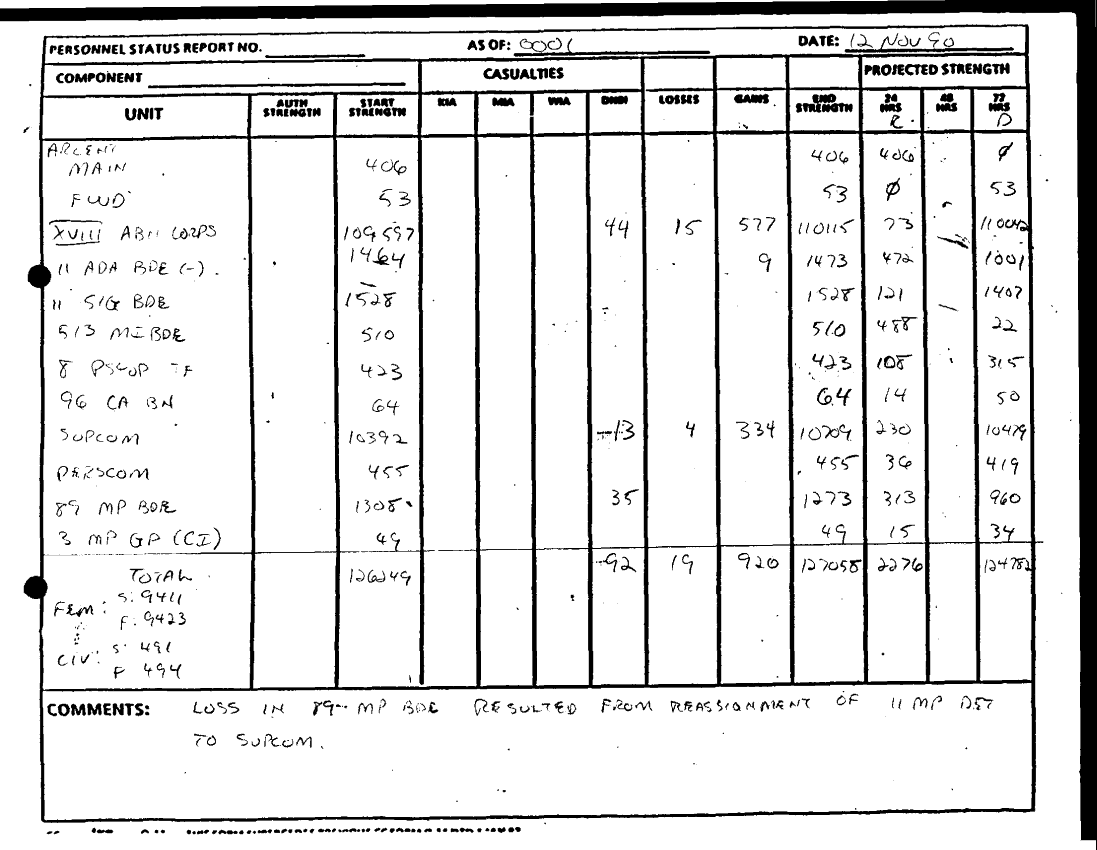 PERSONNEL STATUS REPORT NO. AS OF: 0001 DATE: 12 NOV 90
COMPONENT CASUALTIES PROJECTED STRENGTH
UNIT AUTH STRENGTH START STRENGTH KIA MIA WIA DNBI LOSSES GAINS END STRENGTH 24 HRS 48 HRS 72 HRS
R. D
ARCENT
MAIN 406 406 406 ∅
FWD 53 53 ∅ 53
XVIII ABN CORPS 109597 44 15 577 110115 73 110042
11 ADA BDE (-). 1464 9 1473 472 1001
11 SIG BDE 1528 1528 121 1407
513 MI BDE 510 510 488 22
8 PSYOP TF 423 423 108 315
96 CA BN 64 64 14 50
SUPCOM 10392 13 4 334 10709 230 10479
PERSCOM 455 455 36 419
89 MP BDE 1308 35 1273 313 960
3 MP GP (CI) 49 49 15 34
TOTAL 126249 92 19 920 127058 2276 124782
S: 9411
FEM:
F: 9423
S: 491
CIV:
F 494
COMMENTS: LOSS IN 89 MP BDE RESULTED FROM REASSIGNMENT OF 11 MP DET
TO SUPCOM.